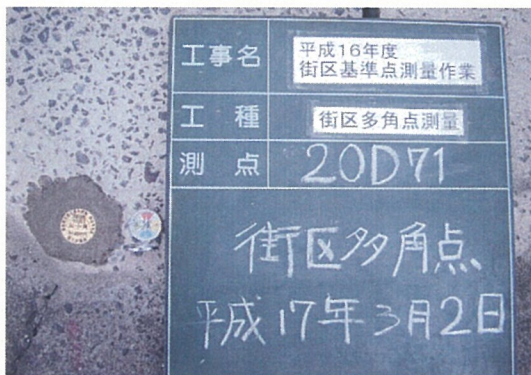 工事名
平成16年度
街区基準点測量作業
工 種
街区多角点測量
測 点
20D71
街区多角点
平成17年3月2日